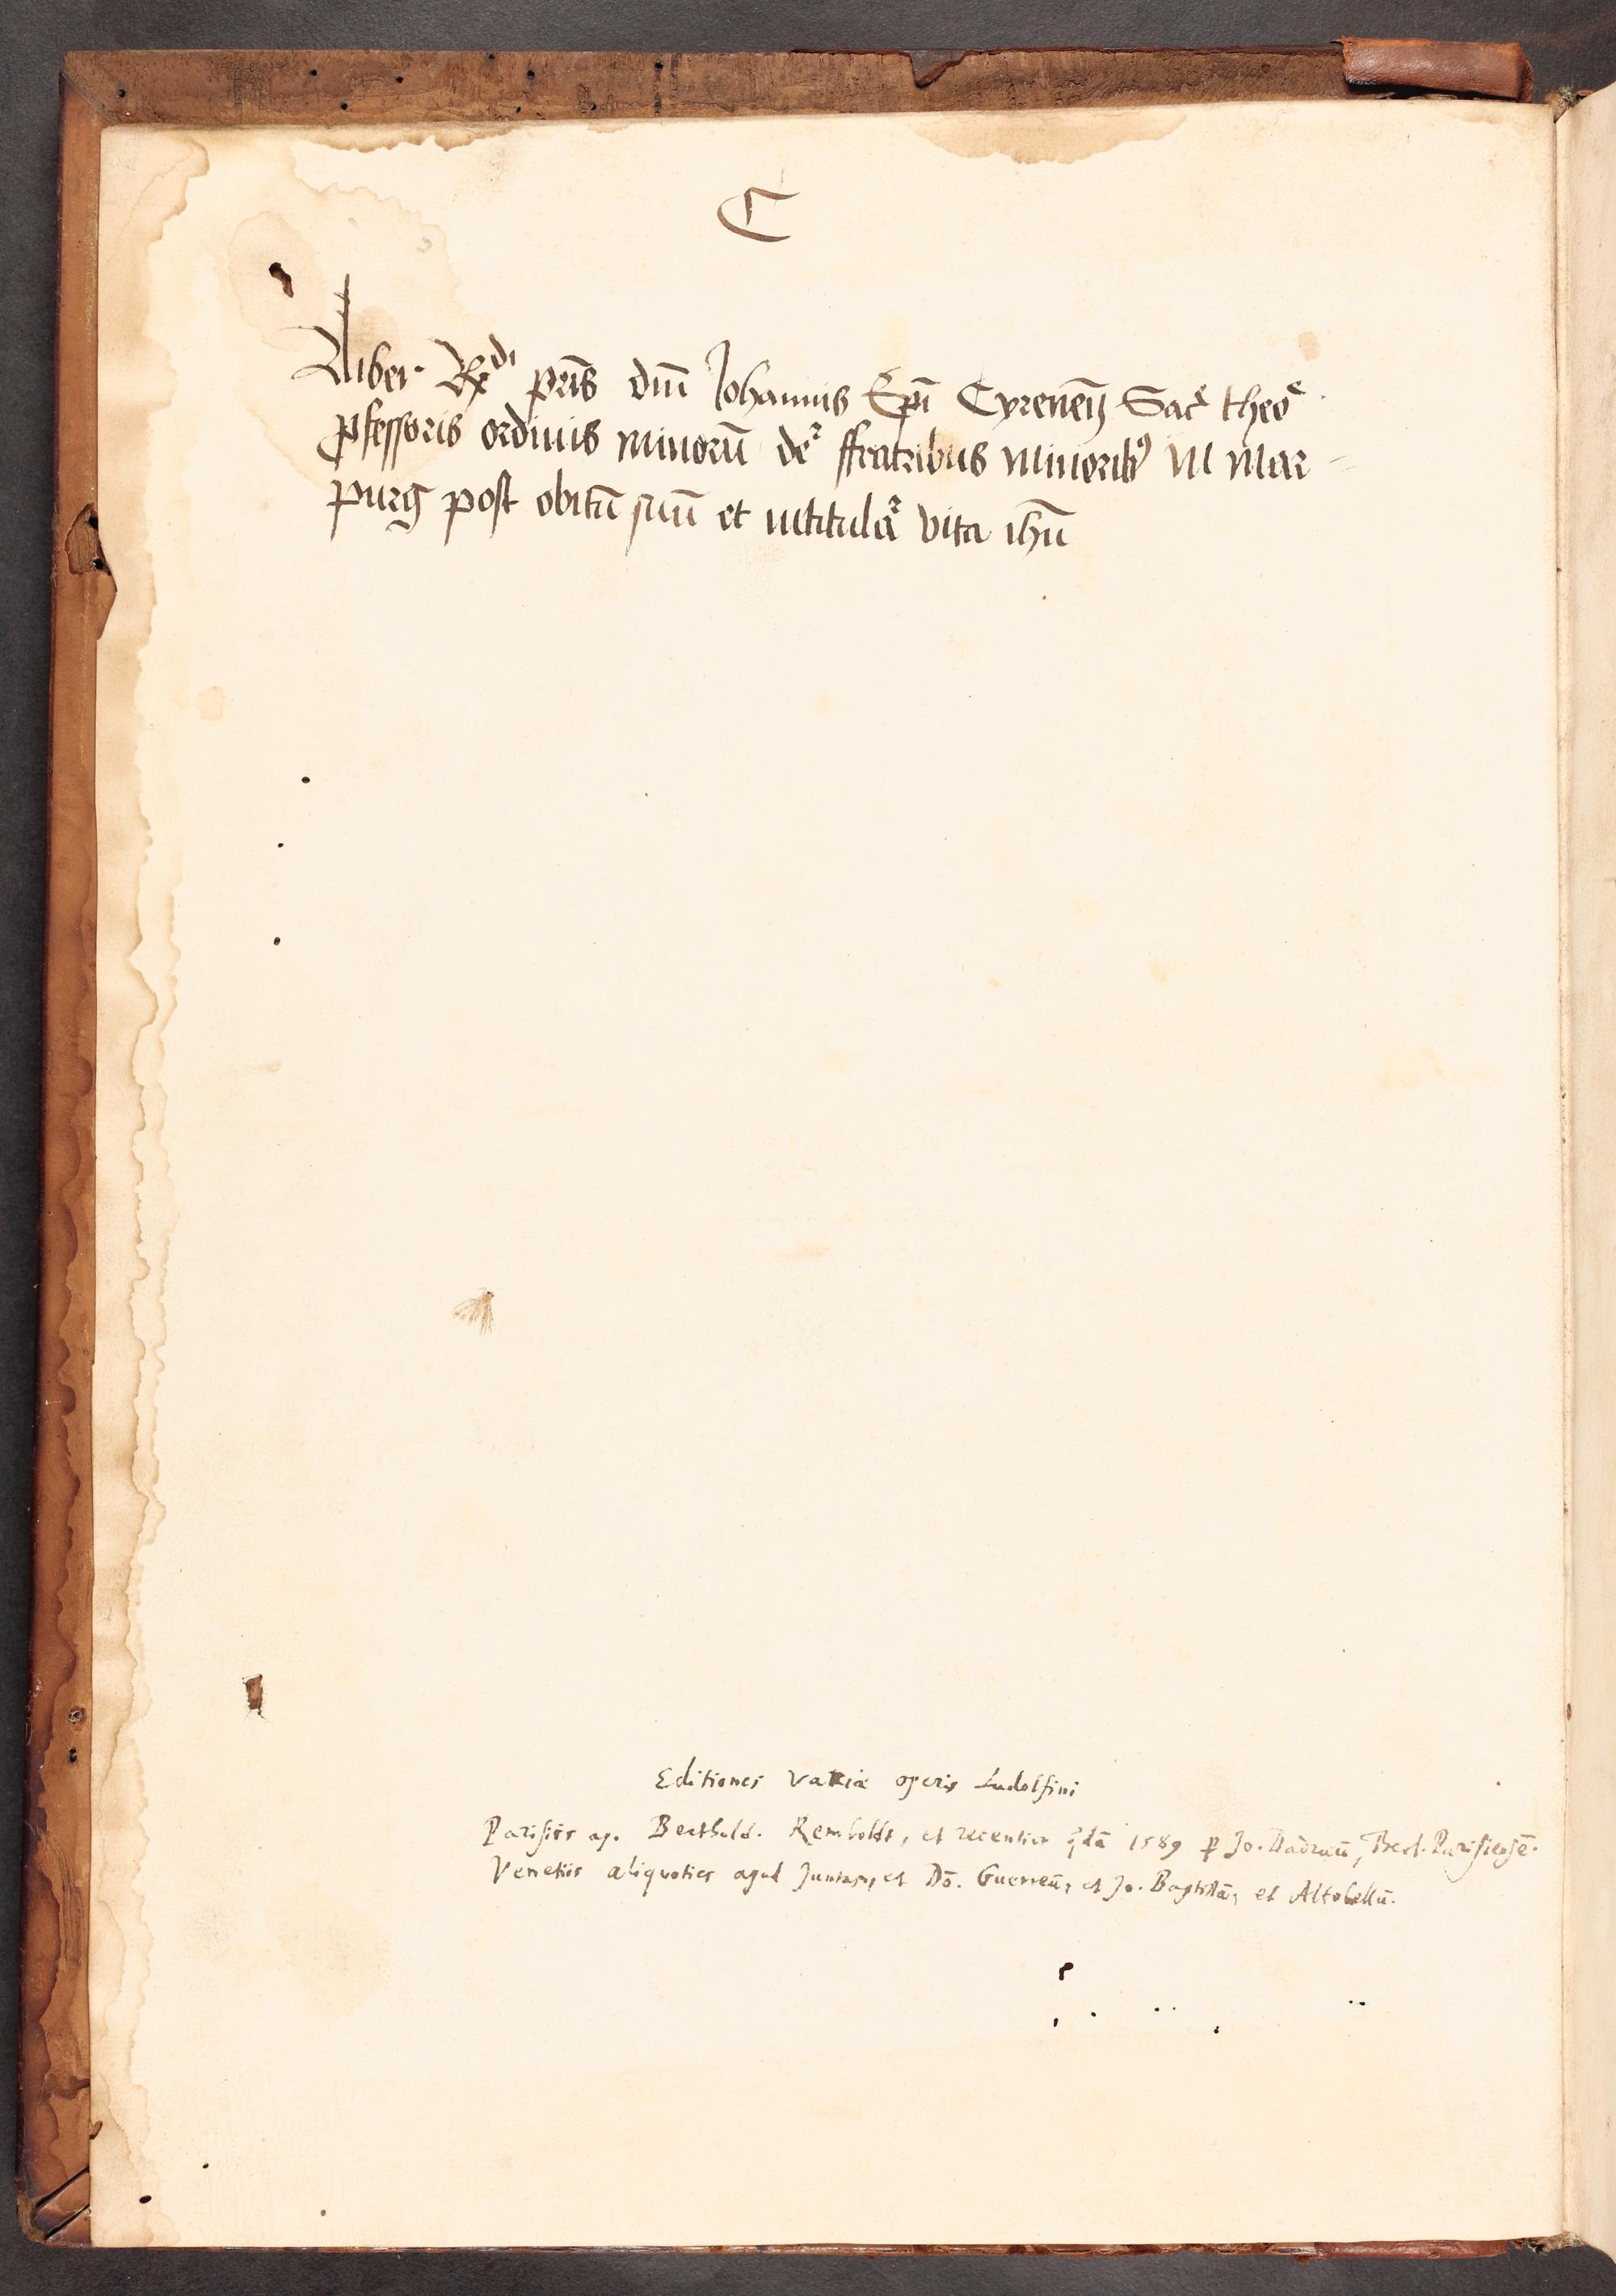 C
Liber Rx^di pr̄is dn̄i Johannis Ep̄i Cyreneñ Sac̄ theo^e
ꝓfessoris ordinis minorū de^r ffratribus minorib⁹ in mar=
purg post obitū suū et intitula^r vita ihū
Editiones variæ operis Ludolfini
Parisiis ap. Berthold. Remboldt, et recentior q̄dā 1589 ꝑ Jo. Dadræū, Theol. Parisiēsē.
Venetiis aliquoties apud Juntas, et Dō. Guerreū, et Jo. Baptistā, et Altobellū.